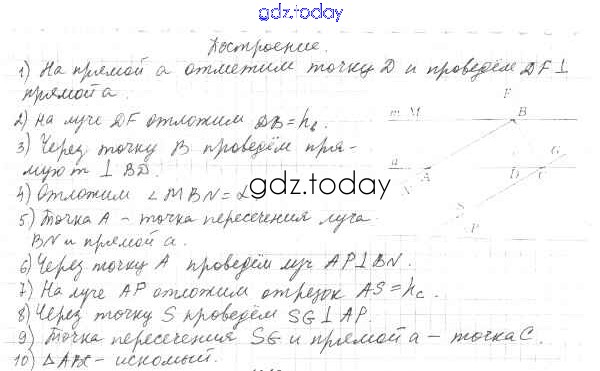 gdz.today
Построение.
1) На прямой a отметим точку D и проведём DF⊥
прямой a.
2) На луче DF отложим DB = h_b.
3) Через точку B проведём пря-
мую m ⊥ BD.
4) Отложим ∠MBN = ∠
gdz.today
5) Точка A - точка пересечения луча
BN и прямой a.
6) Через точку A проведём луч AP⊥BN.
7) На луче AP отложим отрезок AS = h_c.
8) Через точку S проведём SG⊥AP.
9) Точка пересечения SG и прямой a - точка C.
10) △ABC - искомый.
F
m M B
a G
N A D C
S
P